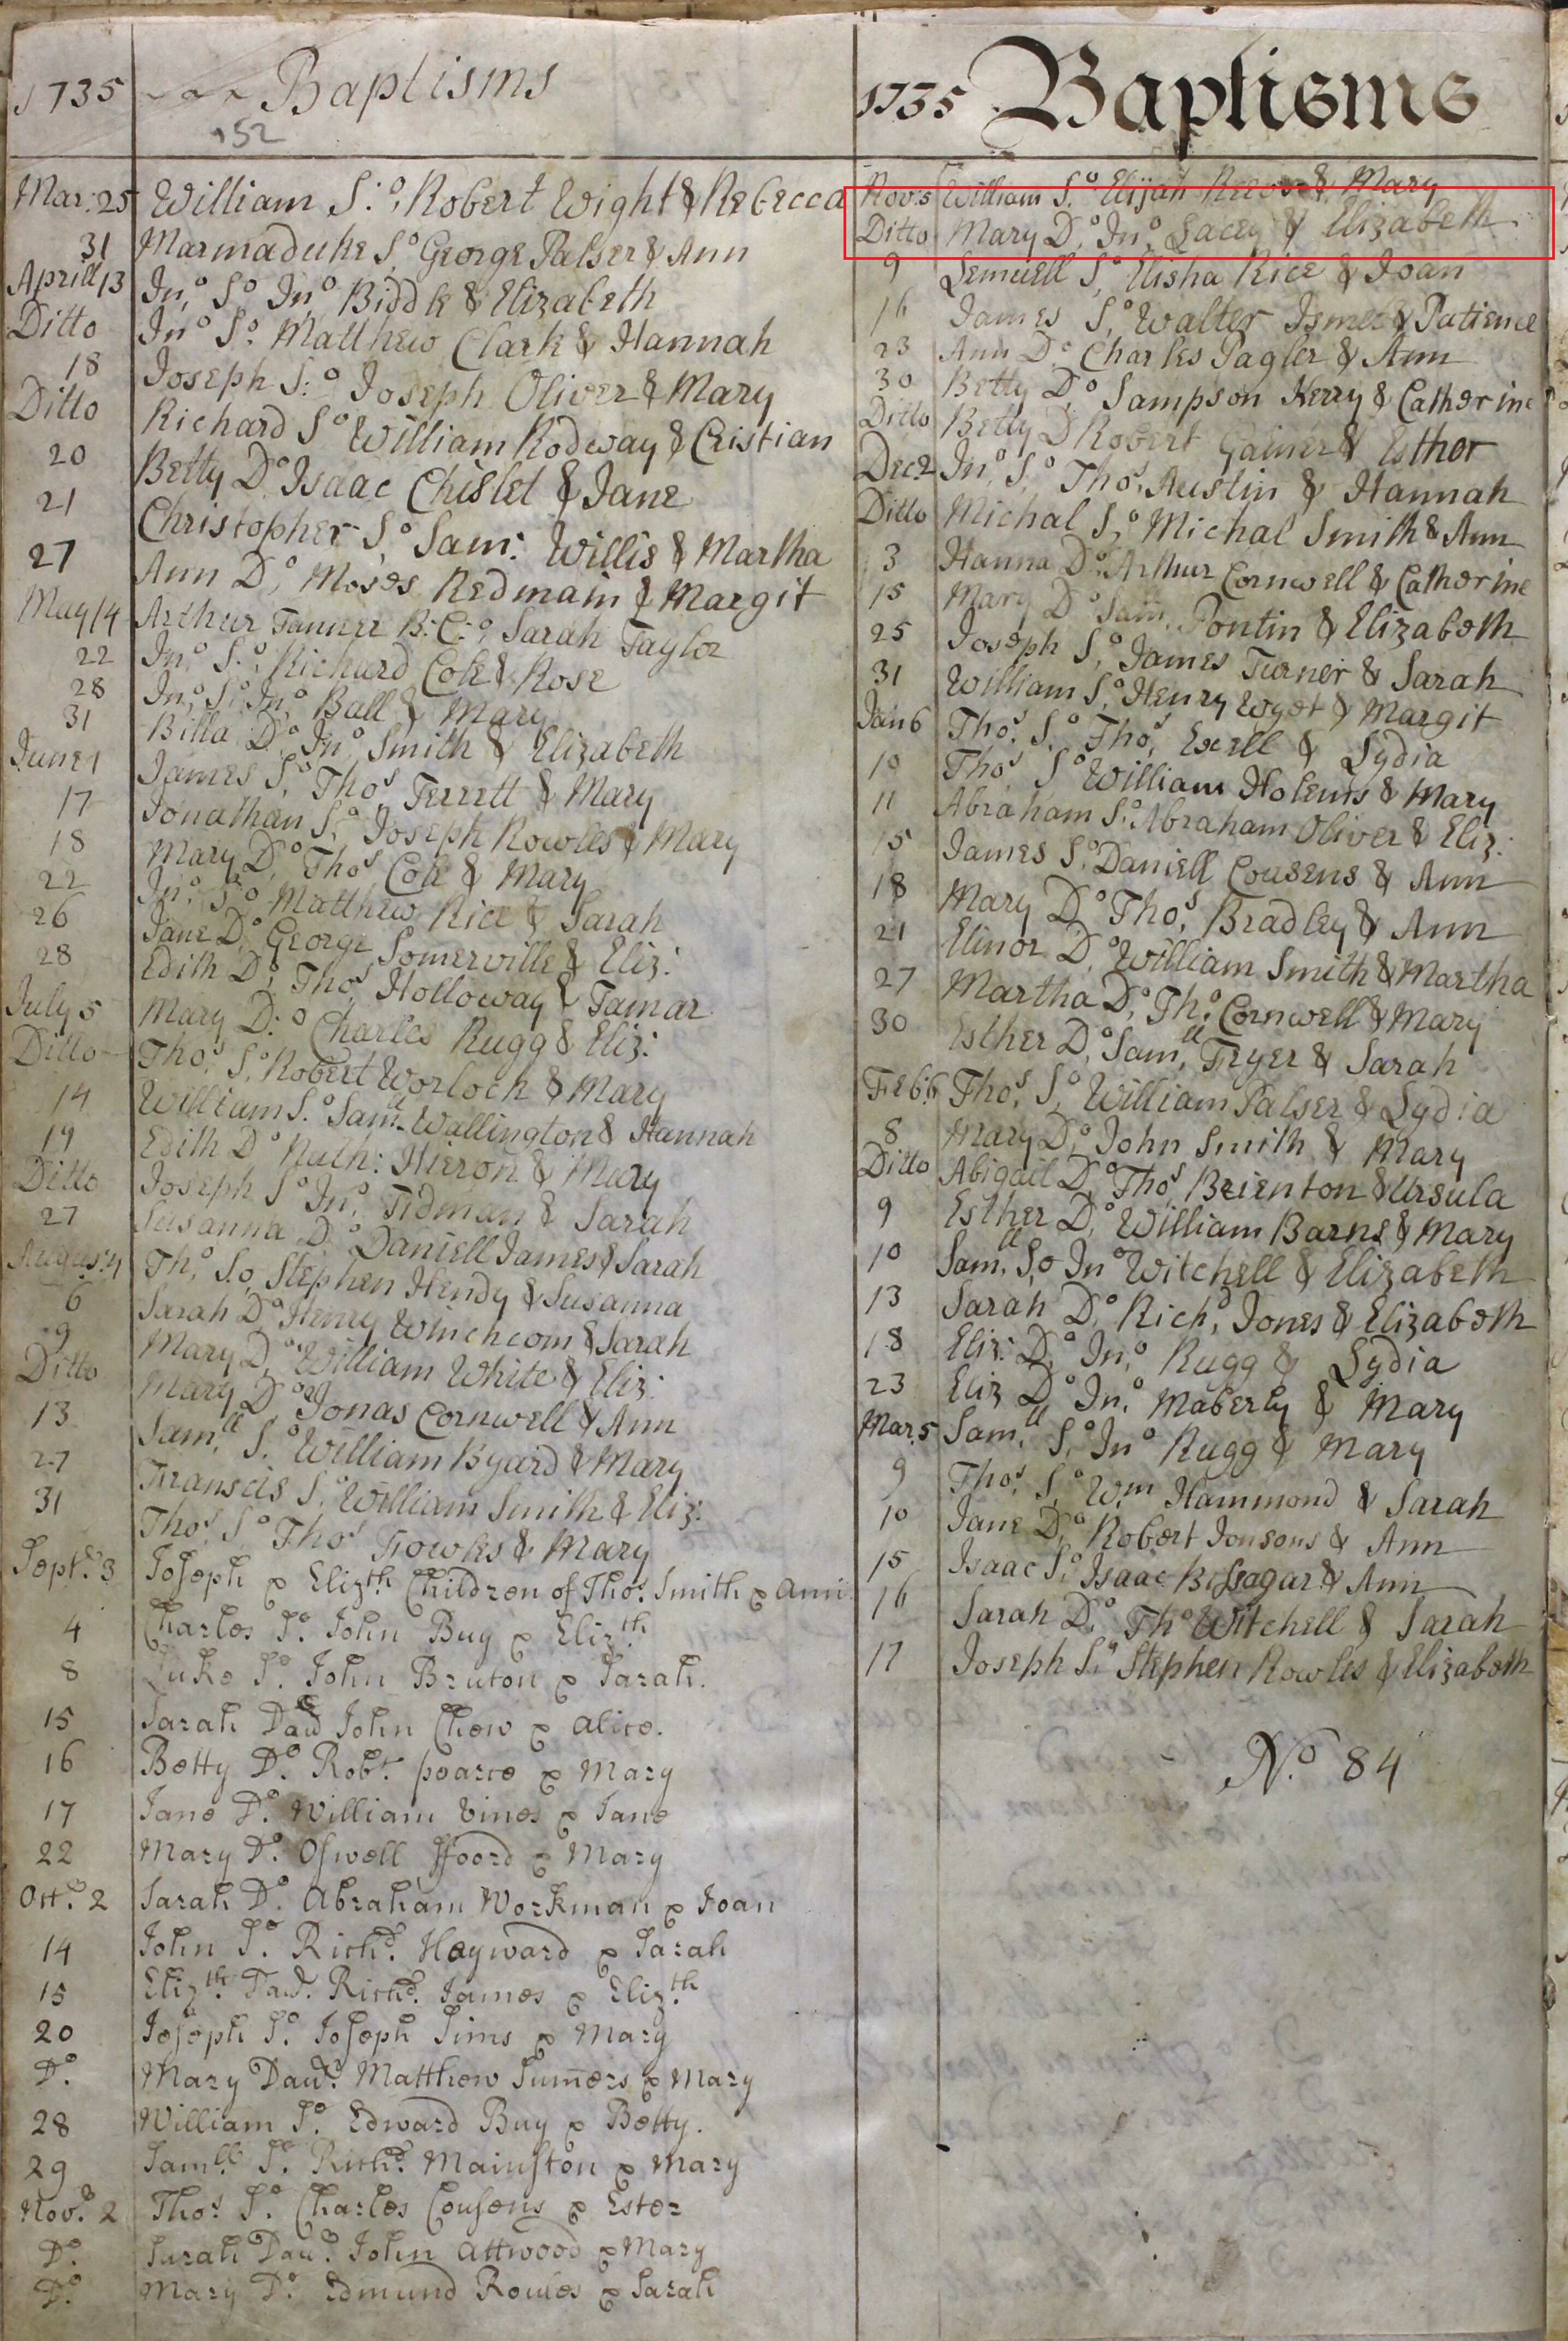 1735 Baptisms
152
Mar: 25 William S:o, Robert Wight & Rebecca
31 Marmaduke S,o George Palser & Ann
Aprill 13 Jn,o S,o Jn,o Biddle & Elizabeth
Ditto Jn,o S,o Matthew Clark & Hannah
18 Joseph S:o Joseph Oliver & Mary
Ditto Richard S,o William Rodway & Cristian
20 Betty D,o Isaac Chislet & Jane
21 Christopher S,o Sam: Willis & Martha
27 Ann D,o Moses Redmain & Margit
May 14 Arthur Tanner B:C:o, Sarah Taylor
22 Jn,o S.o, Richard Cole & Rose
28 Jn,o S,o Jn,o Ball & Mary
31 Billa D,o Jn,o Smith & Elizabeth
June 1 James S,o Thos Ferrett & Mary
17 Jonathan S,o Joseph Rowles & Mary
18 Mary D,o Thos Cole & Mary
22 Jn,o S,o Matthew Rice & Sarah
26 Jane D,o George Somerville & Eliz:
28 Edith D,o Thos Holloway & Tamar
July 5 Mary D:o Charles Rugg & Eliz:
Ditto Tho,s S,o Robert Worlock & Mary
14 William S.o Samll Wallington & Hannah
19 Edith D,o Nath: Hieron & Mary
Ditto Joseph S,o Jn,o Tidman & Sarah
27 Susanna D,o Daniell James & Sarah
August 4 Th,o S,o Stephen Hendy & Susanna
6 Sarah D,o Henry Whinchcom & Sarah
9 Mary D,o William White & Eliz:
Ditto Mary D,o Jonas Cornwell & Ann
13 Sam,ll S,o William Byard & Mary
27 Franscis S,o William Smith & Eliz:
31 Thos S,o Thos Fowks & Mary
Septr 3 Joseph & Elizth Children of Thos Smith & Ann
4 Charles So. John Buy & Elizth
8 Luke So. John Bruton & Sarah.
15 Sarah Daur John Chew & Alice.
16 Betty Do. Robt. pearce & Mary
17 Jane Do. William Vines & Jane
22 Mary Do. Oswell Ffoord & Mary
Octr. 2 Sarah Do. Abraham Workman & Joan
14 John So. Richd. Heyward & Sarah
15 Elizth. Daur. Richd. James & Elizth
20 Joseph So. Joseph Sims & Mary
Do. Mary Daur. Matthew Sumers & Mary
28 William So. Edward Buy & Betty.
29 Samll. So. Richd. Mainston & Mary
Novr. 2 Thos. So. Charles Cousens & Ester
Do. Sarah Daur. John Attwood & Mary
Do. Mary Do. Edmund Rowles & Sarah
1735 Baptisms
Nov: 5 William S,o Elijah & Mary
Ditto Mary D,o Jn,o Lacey & Elizabeth
9 Lemuell S,o Elisha Rice & Joan
16 James S,o Walter & Patience
23 Ann D,o Charles Pagler & Ann
30 Betty D,o Sampson Kerry & Catherine
Ditto Betty D,o Robert Gainer & Esther
Dec: 2 Jn,o S,o Thos, Austin & Hannah
Ditto Michal S,o Michal Smith & Ann
3 Hanna D,o Arthur Cornwell & Catherine
15 Mary D,o Sam, Pontin & Elizabeth
25 Joseph S,o James Turner & Sarah
31 William S,o Henry Wyet & Margit
Jan 6 Tho,s S,o Tho,s Exell & Lydia
10 Thos S,o William Holems & Mary
11 Abraham S,o Abraham Oliver & Eliz:
15 James S,o Daniell Cousens & Ann
18 Mary D,o Tho,s Bradley & Ann
21 Elinor D,o William Smith & Martha
27 Martha D,o Th,o Cornwell & Mary
30 Esther D,o Sam,ll Fryer & Sarah
Feb: 6 Tho,s S,o William Palser & Lydia
8 Mary D,o John Smith & Mary
Ditto Abigail D,o Thos Brienton & Ursula
9 Esther D,o William Barns & Mary
10 Sam,ll S,o Jno Witchell & Elizabeth
13 Sarah D,o Rich,d Jones & Elizabeth
18 Eliz: D,o Jn,o Rugg & Lydia
23 Eliz D,o Jn,o Maberly & Mary
Mar: 5 Sam,ll S,o Jno Rugg & Mary
9 Tho,s S,o Wm Hammond & Sarah
10 Jane D,o Robert Jonsons & Ann
15 Isaac S,o Isaac & Ann
16 Sarah D,o Tho Witchell & Sarah
17 Joseph S,o Stephen Rowles & Elizabeth
No. 84